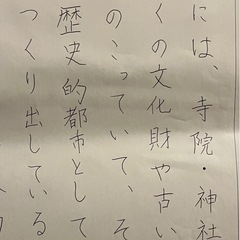 には、寺院・神社
くの文化財や古い
のこっていて、そ
歴史的都市として
つくり出している